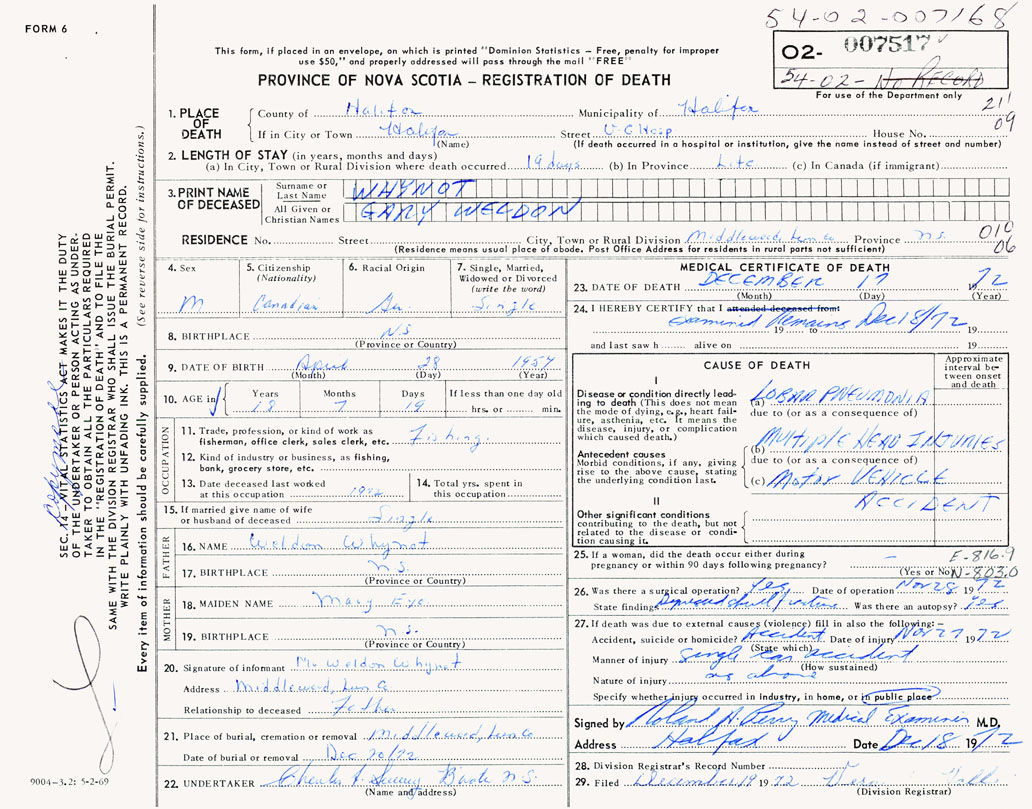 54-02-007168
FORM 6
O2- 007517
54-02- No RECORD
For use of the Department only
This form, if placed in an envelope, on which is printed "Dominion Statistics – Free, penalty for improper
use $50," and properly addressed will pass through the mail "FREE"
PROVINCE OF NOVA SCOTIA – REGISTRATION OF DEATH
211
09
1. PLACE OF DEATH
County of Halifax Municipality of Halifax
If in City or Town Halifax Street V G Hosp House No.
(Name) (If death occurred in a hospital or institution, give the name instead of street and number)
2. LENGTH OF STAY (in years, months and days)
(a) In City, Town or Rural Division where death occurred 19 days (b) In Province Life (c) In Canada (if immigrant)
3. PRINT NAME OF DECEASED
Surname or Last Name WHYNOT
All Given or Christian Names GARY WELDON
RESIDENCE No. Street City, Town or Rural Division Middlewood, Lun Co Province N.S.
010
06
(Residence means usual place of abode. Post Office Address for residents in rural parts not sufficient)
4. Sex M
5. Citizenship (Nationality) Canadian
6. Racial Origin
7. Single, Married, Widowed or Divorced (write the word) Single
8. BIRTHPLACE N S
(Province or Country)
9. DATE OF BIRTH April 28 1954
(Month) (Day) (Year)
10. AGE in Years 18 Months 7 Days 19 If less than one day old hrs. or min.
OCCUPATION
11. Trade, profession, or kind of work as fisherman, office clerk, sales clerk, etc. Fishing
12. Kind of industry or business, as fishing, bank, grocery store, etc.
13. Date deceased last worked at this occupation 1972
14. Total yrs. spent in this occupation
15. If married give name of wife or husband of deceased Single
FATHER
16. NAME Weldon Whynot
17. BIRTHPLACE N.S.
(Province or Country)
MOTHER
18. MAIDEN NAME Mary
19. BIRTHPLACE N.S.
(Province or Country)
20. Signature of informant Mr Weldon Whynot
Address Middlewood, Lun Co
Relationship to deceased Father
21. Place of burial, cremation or removal Middlewood, Lun Co
Date of burial or removal Dec 20/72
22. UNDERTAKER Charles N.S.
(Name and address)
MEDICAL CERTIFICATE OF DEATH
23. DATE OF DEATH DECEMBER 17 1972
(Month) (Day) (Year)
24. I HEREBY CERTIFY that I attended deceased from
Examined Remains Dec 18/72
19 to 19
and last saw h alive on 19
CAUSE OF DEATH
Approximate interval between onset and death
I
Disease or condition directly leading to death (This does not mean the mode of dying, e.g., heart failure, asthenia, etc. It means the disease, injury, or complication which caused death.)
(a) LOBAR PNEUMONIA
due to (or as a consequence of)
Antecedent causes
Morbid conditions, if any, giving rise to the above cause, stating the underlying condition last.
(b) MULTIPLE HEAD INJURIES
due to (or as a consequence of)
(c) MOTOR VEHICLE
ACCIDENT
II
Other significant conditions contributing to the death, but not related to the disease or condition causing it.
25. If a woman, did the death occur either during pregnancy or within 90 days following pregnancy? –
(Yes or No)
E-816.9
N-803.0
26. Was there a surgical operation? Yes Date of operation Nov 28 1972
State findings Depressed skull fracture Was there an autopsy? Yes
27. If death was due to external causes (violence) fill in also the following: –
Accident, suicide or homicide? Accident Date of injury Nov 27 1972
(State which)
Manner of injury Single car accident
(How sustained)
Nature of injury as above
Specify whether injury occurred in industry, in home, or in public place
Signed by Roland A. Perry Medical Examiner M.D,
Address Halifax Date Dec 18 1972
28. Division Registrar's Record Number
29. Filed December 19 1972
(Division Registrar)
SEC. 14 – VITAL STATISTICS ACT MAKES IT THE DUTY
OF THE UNDERTAKER OR PERSON ACTING AS UNDER-
TAKER TO OBTAIN ALL THE PARTICULARS REQUIRED
IN THE "REGISTRATION OF DEATH" AND TO FILE THE
SAME WITH THE DIVISION REGISTRAR WHO SHALL ISSUE THE BURIAL PERMIT.
WRITE PLAINLY WITH UNFADING INK. THIS IS A PERMANENT RECORD.
Every item of information should be carefully supplied. (See reverse side for instructions.)
9004-3.2: 5-2-69